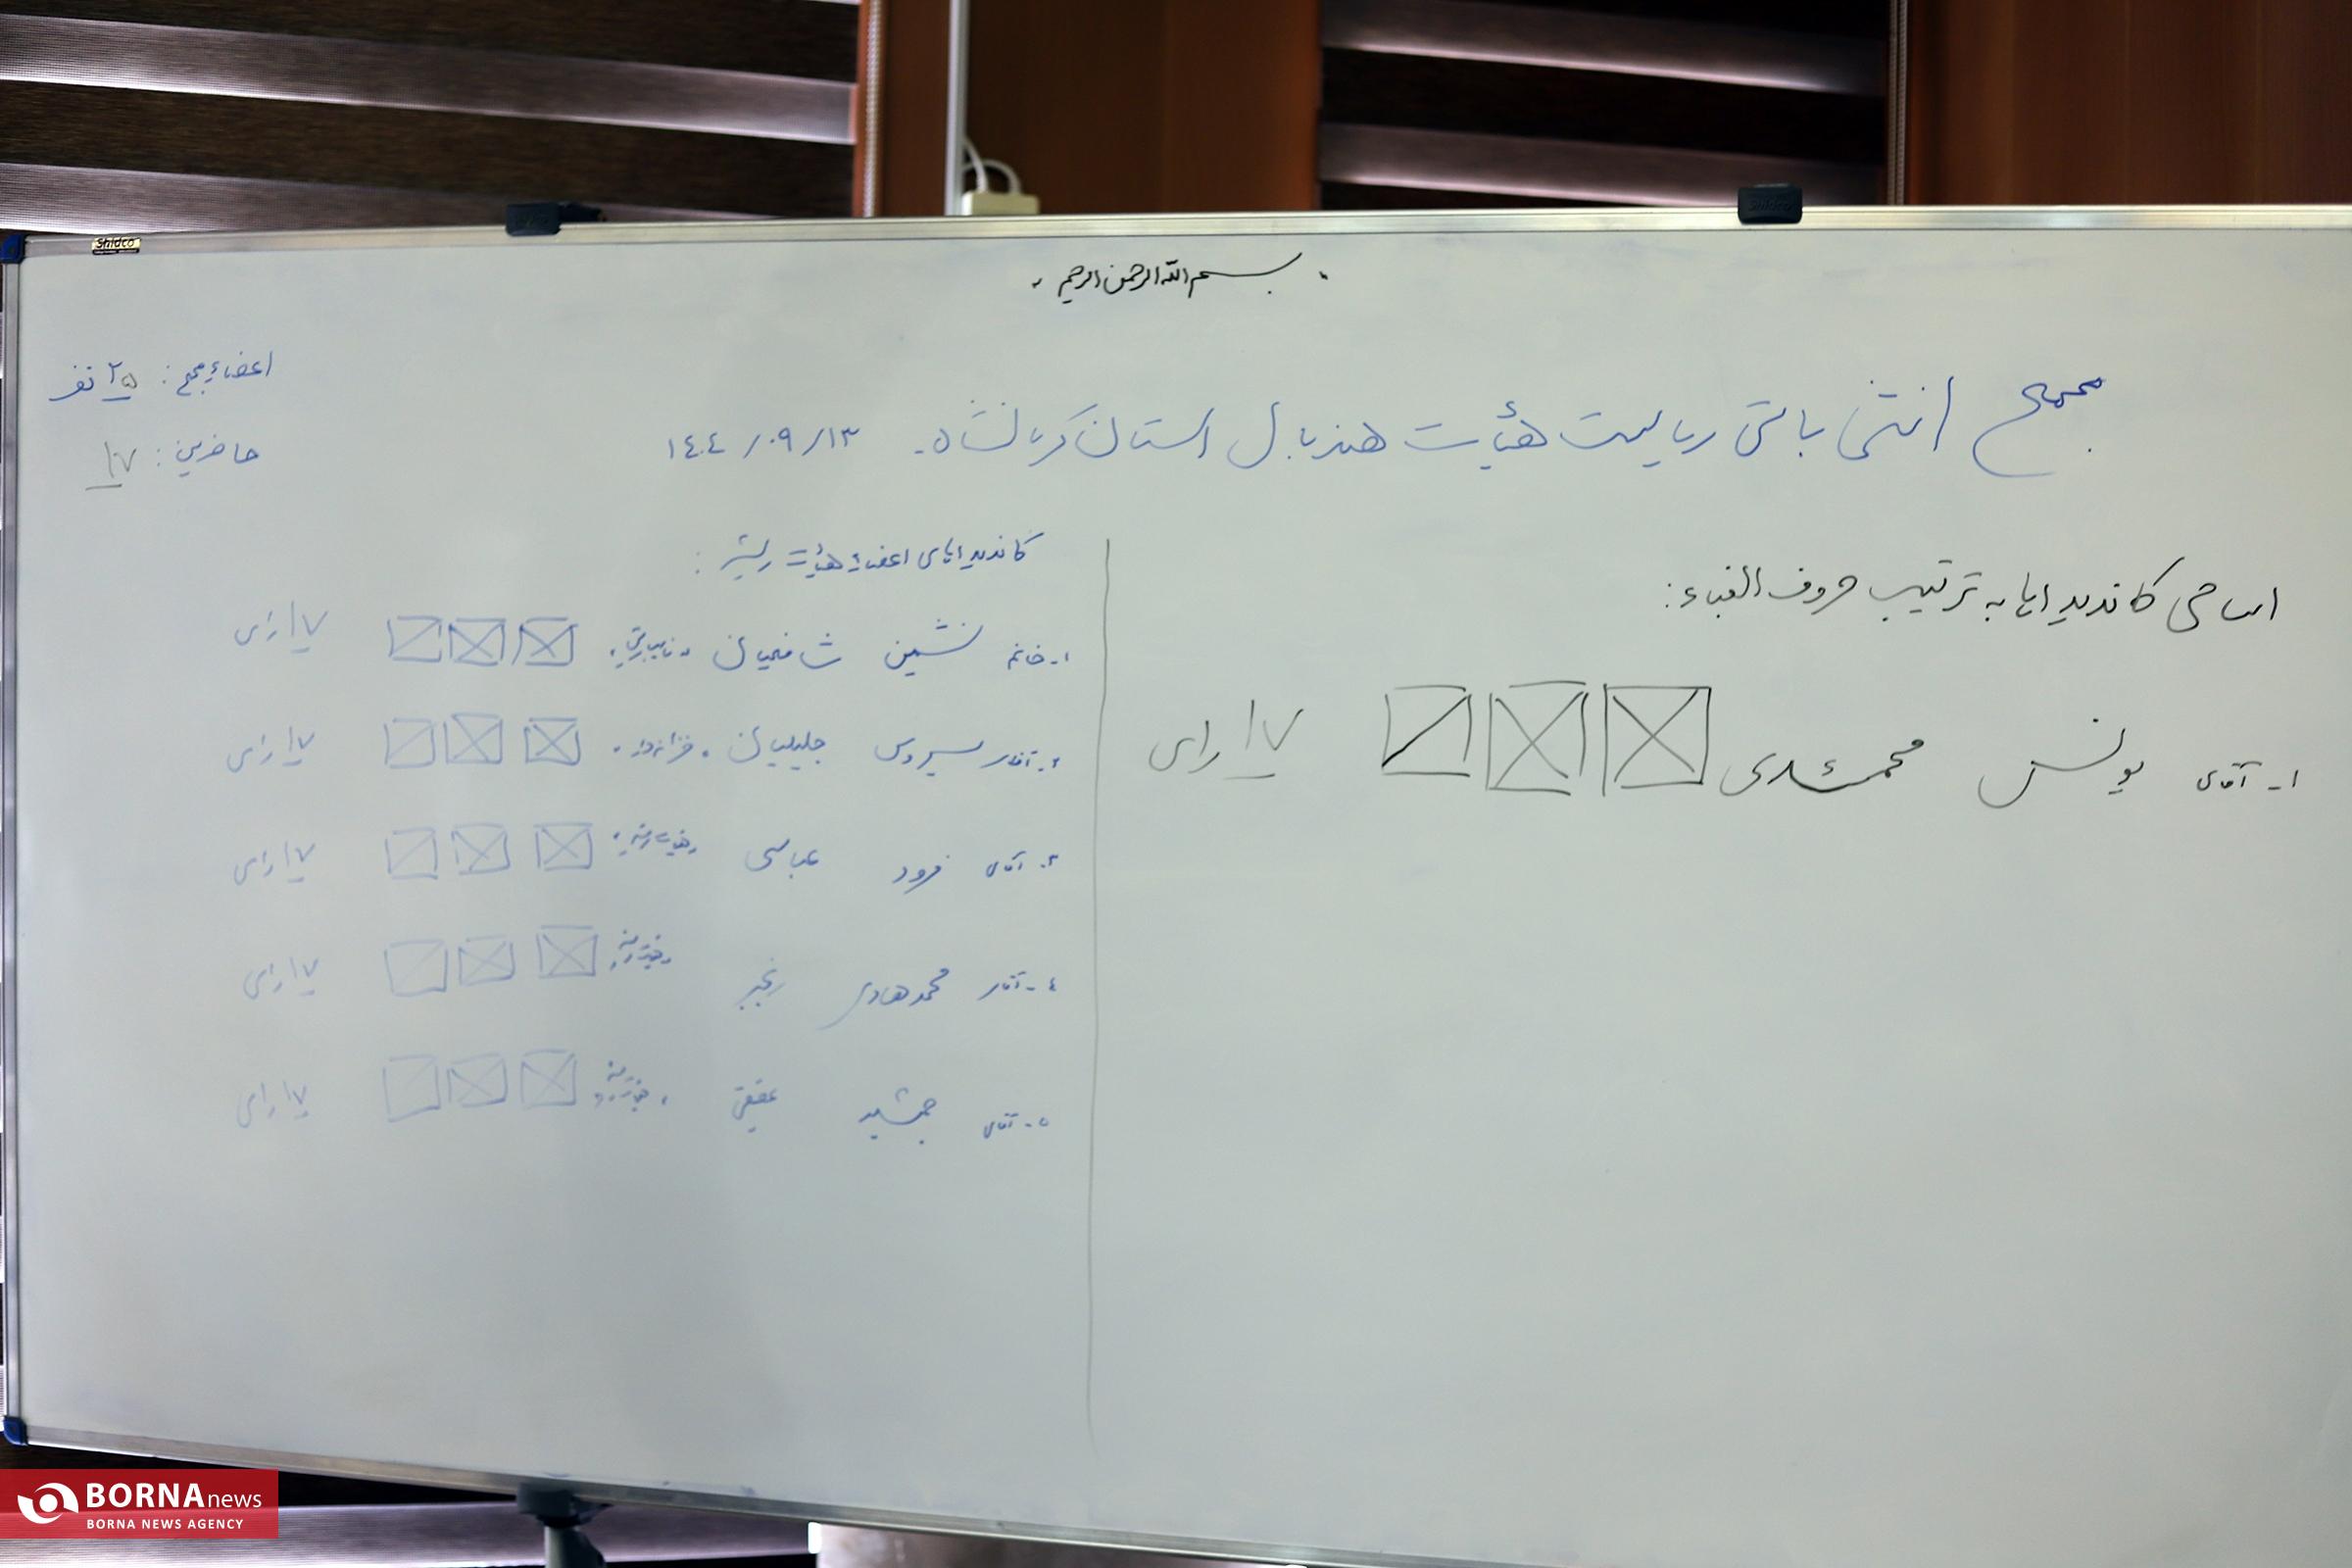 بسم الله الرحمن الرحیم
اعضاء مجمع: ۲۵ نفر
حاضرین: ۱۷
مجمع انتخاباتی ریاست هیأت هندبال استان کرمانشاه. ۱۴۰۴/۰۹/۱۳
اسامی کاندیداها به ترتیب حروف الفباء:
۱- آقای یونس محمدی ۱۷ رای
کاندیداهای اعضاء هیأت رئیسه:
۱- خانم نشمین شافعیان "نایب رئیس" ۱۷ رای
۲- آقای سیروس جلیلیان "خزانه‌دار" ۱۷ رای
۳- آقای فرود عباسی ۱۷ رای
۴- آقای محمدهادی رنجبر ۱۷ رای
۵- آقای جمشید عقیقی ۱۷ رای
Shidco
BORNA news
BORNA NEWS AGENCY